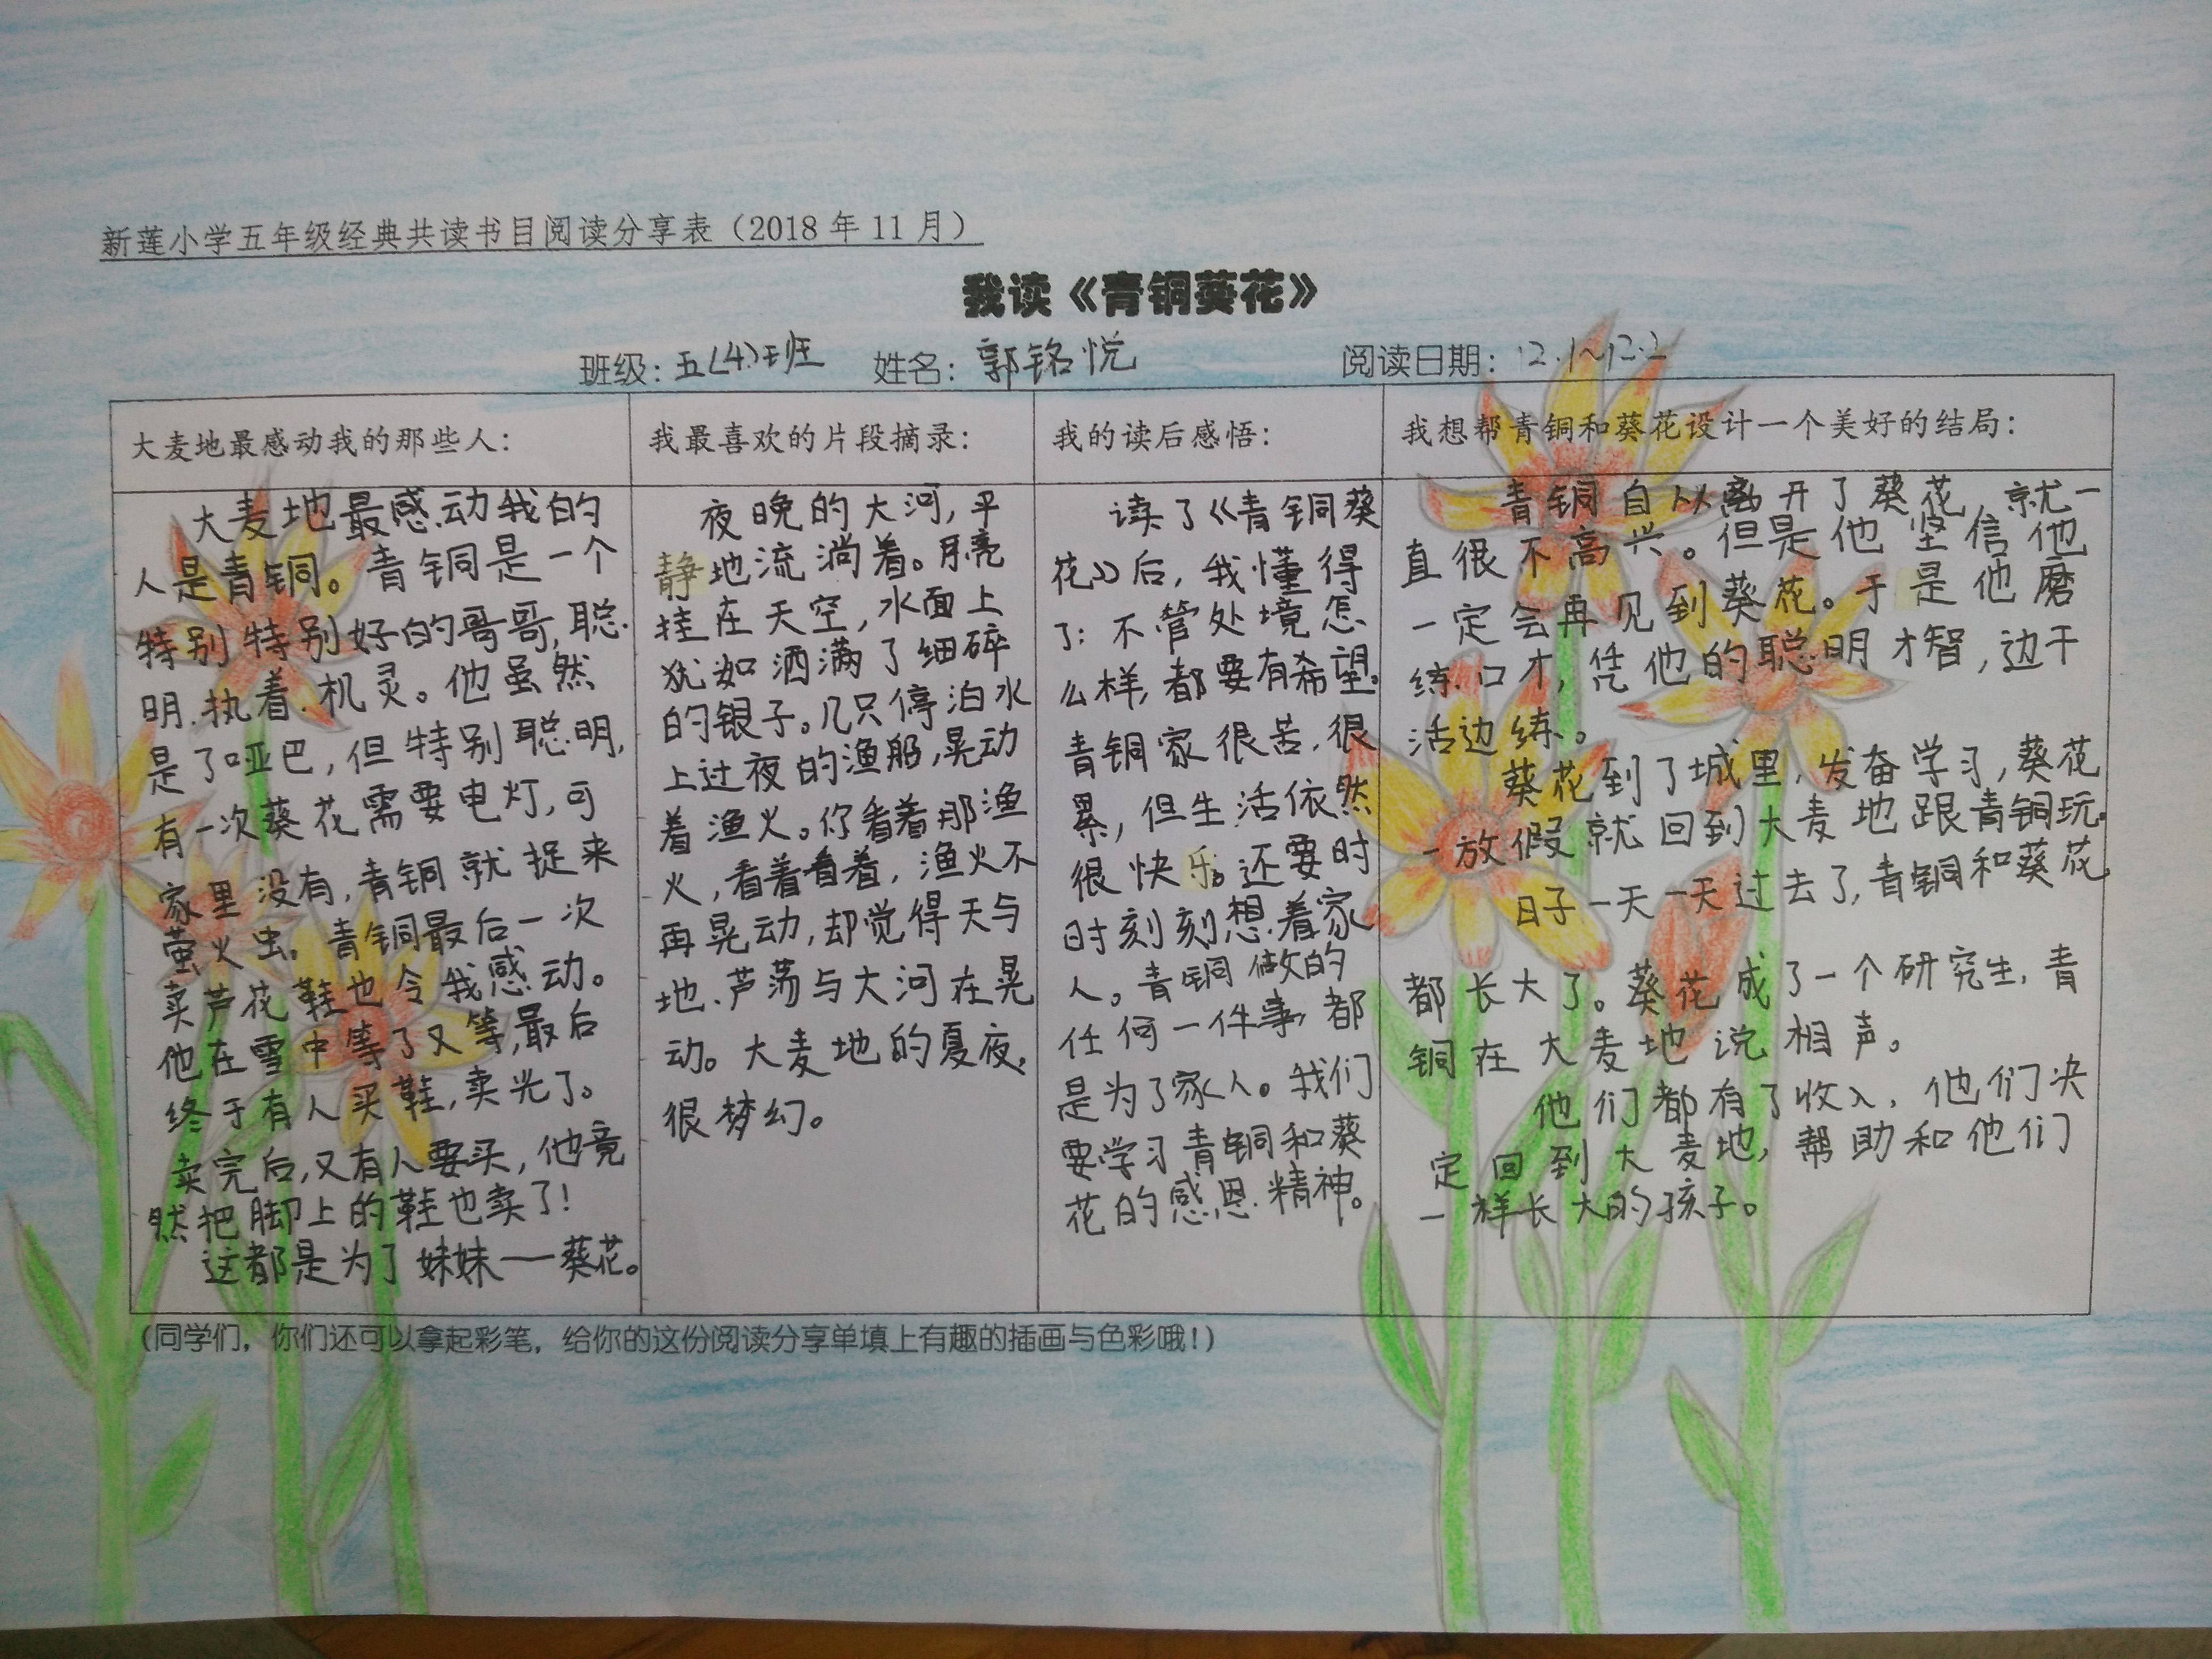 新莲小学五年级经典共读书目阅读分享表（2018 年 11 月）
我读《青铜葵花》
班级：五(4)班 姓名：郭铭悦 阅读日期：12.1~12.2
大麦地最感动我的那些人：
大麦地最感动我的
人是青铜。青铜是一个
特别特别好的哥哥,聪
明.执着.机灵。他虽然
是了哑巴,但特别聪明,
有一次葵花需要电灯,可
家里没有,青铜就捉来
萤火虫。青铜最后一次
卖芦花鞋也令我感动。
他在雪中等了又等,最后
终于有人买鞋,卖光了。
卖完后,又有人要买,他竟
然把脚上的鞋也卖了!
这都是为了妹妹——葵花。
我最喜欢的片段摘录：
夜晚的大河,平
静地流淌着。月亮
挂在天空,水面上
犹如洒满了细碎
的银子。几只停泊水
上过夜的渔船,晃动
着渔火。你看着那渔
火,看着看着,渔火不
再晃动,却觉得天与
地.芦荡与大河在晃
动。大麦地的夏夜,
很梦幻。
我的读后感悟：
读了《青铜葵
花》后,我懂得
了:不管处境怎
么样,都要有希望。
青铜家很苦.很
累,但生活依然
很快乐。还要时
时刻刻想着家
人。青铜做的
任何一件事,都
是为了家人。我们
要学习青铜和葵
花的感恩精神。
我想帮青铜和葵花设计一个美好的结局：
青铜自从离开了葵花,就一
直很不高兴。但是他坚信他
一定会再见到葵花。于是他磨
练口才,凭他的聪明才智,边干
活边练。
葵花到了城里,发奋学习,葵花
一放假就回到大麦地跟青铜玩。
日子一天一天过去了,青铜和葵花
都长大了。葵花成了一个研究生,青
铜在大麦地说相声。
他们都有了收入,他们决
定回到大麦地,帮助和他们
一样长大的孩子。
(同学们，你们还可以拿起彩笔，给你的这份阅读分享单填上有趣的插画与色彩哦！)